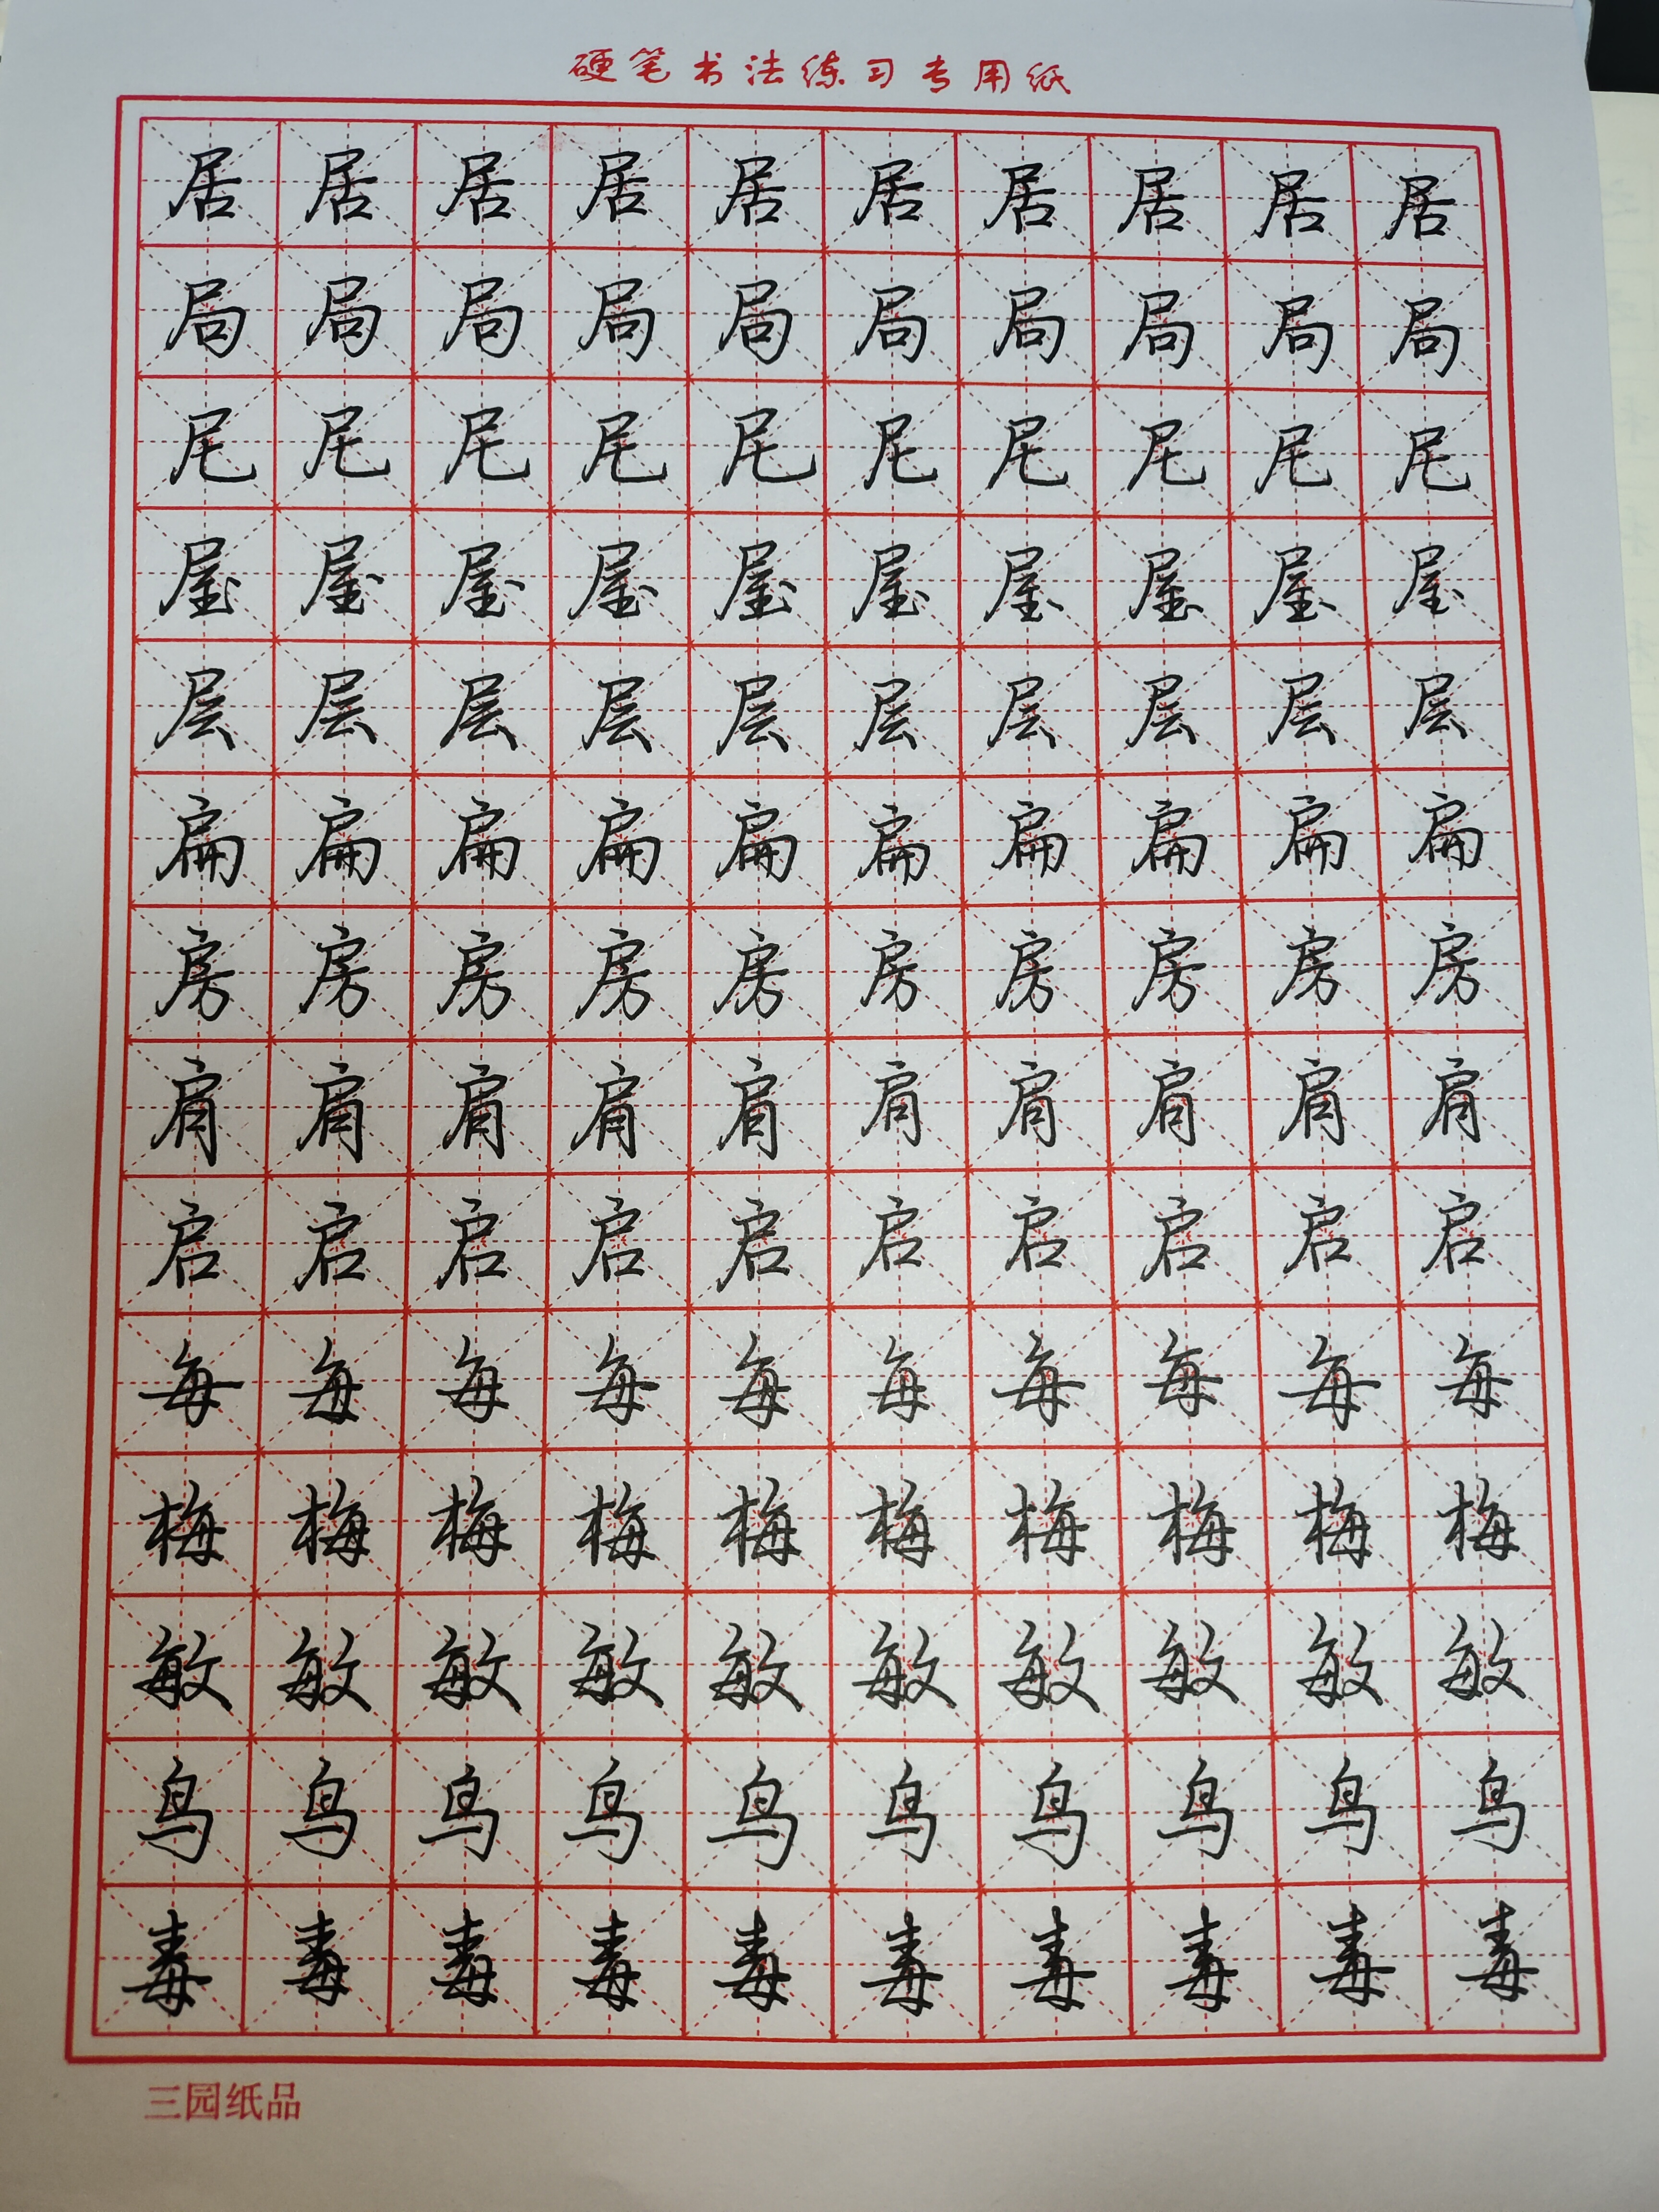 硬笔书法练习专用纸
居居居居居居居居居居
局局局局局局局局局局
尾尾尾尾尾尾尾尾尾尾
屋屋屋屋屋屋屋屋屋屋
层层层层层层层层层层
扁扁扁扁扁扁扁扁扁扁
房房房房房房房房房房
肩肩肩肩肩肩肩肩肩肩
启启启启启启启启启启
每每每每每每每每每每
梅梅梅梅梅梅梅梅梅梅
敏敏敏敏敏敏敏敏敏敏
鸟鸟鸟鸟鸟鸟鸟鸟鸟鸟
毒毒毒毒毒毒毒毒毒毒
三园纸品